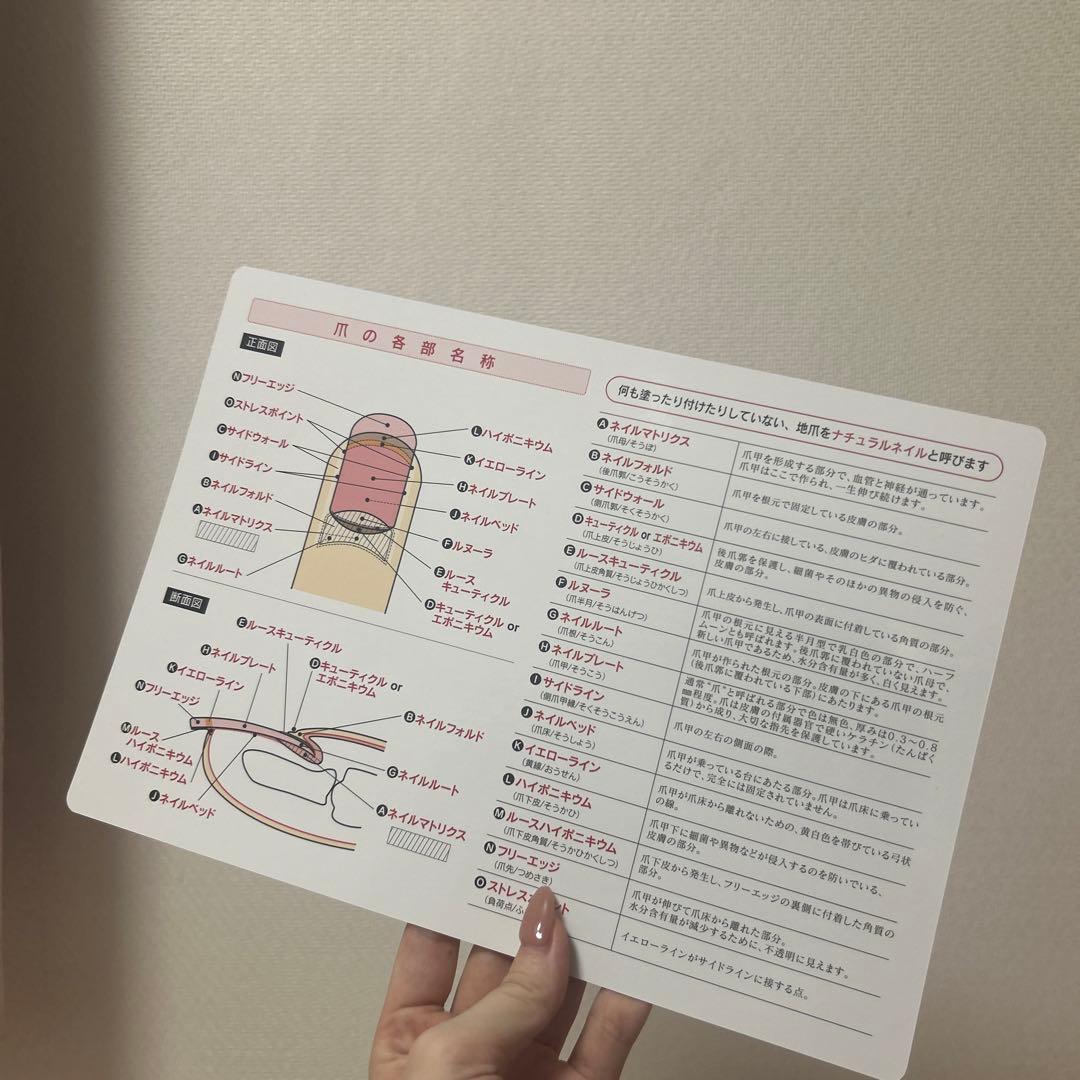 爪の各部名称
正面図
Ⓝフリーエッジ
Ⓞストレスポイント
Ⓒサイドウォール
Ⓘサイドライン
Ⓑネイルフォルド
Ⓐネイルマトリクス
Ⓖネイルルート
Ⓛハイポニキウム
Ⓚイエローライン
Ⓗネイルプレート
Ⓙネイルベッド
Ⓕルヌーラ
Ⓔルース
キューティクル
Ⓓキューティクル or
エポニキウム
断面図
Ⓔルースキューティクル
Ⓗネイルプレート
Ⓓキューティクル or
エポニキウム
Ⓚイエローライン
Ⓝフリーエッジ
Ⓑネイルフォルド
Ⓜルース
ハイポニキウム
Ⓛハイポニキウム
Ⓙネイルベッド
Ⓖネイルルート
Ⓐネイルマトリクス
何も塗ったり付けたりしていない、地爪をナチュラルネイルと呼びます
Ⓐネイルマトリクス
(爪母/そうぼ)
爪甲を形成する部分で、血管と神経が通っています。
爪甲はここで作られ、一生伸び続けます。
Ⓑネイルフォルド
(後爪郭/こうそうかく)
爪甲を根元で固定している皮膚の部分。
Ⓒサイドウォール
(側爪郭/そくそうかく)
爪甲の左右に接している、皮膚のヒダに覆われている部分。
Ⓓキューティクル or エポニキウム
(爪上皮/そうじょうひ)
後爪郭を保護し、細菌やそのほかの異物の侵入を防ぐ、
皮膚の部分。
Ⓔルースキューティクル
(爪上皮角質/そうじょうひかくしつ)
爪上皮から発生し、爪甲の表面に付着している角質の部分。
Ⓕルヌーラ
(爪半月/そうはんげつ)
爪甲の根元に見える半月型で乳白色の部分で、ハーフ
ムーンとも呼ばれます。後爪郭に覆われていない爪母で、
新しい爪甲であるため、水分含有量が多く、白く見えます。
Ⓖネイルルート
(爪根/そうこん)
爪甲が作られた根元の部分。皮膚の下にある爪甲の根元
(後爪郭に覆われている下部)にあたります。
Ⓗネイルプレート
(爪甲/そうこう)
通常“爪”と呼ばれる部分で色は無色、厚みは0.3〜0.8
㎜程度。爪は皮膚の付属器官で硬いケラチン(たんぱく
質)から成り、大切な指先を保護しています。
Ⓘサイドライン
(側爪甲縁/そくそうこうえん)
爪甲の左右の側面の際。
Ⓙネイルベッド
(爪床/そうしょう)
爪甲が乗っている台にあたる部分。爪甲は爪床に乗ってい
るだけで、完全には固定されていません。
Ⓚイエローライン
(黄線/おうせん)
爪甲が爪床から離れないための、黄白色を帯びている弓状
の線。
Ⓛハイポニキウム
(爪下皮/そうかひ)
爪甲下に細菌や異物などが侵入するのを防いでいる、
皮膚の部分。
Ⓜルースハイポニキウム
(爪下皮角質/そうかひかくしつ)
爪下皮から発生し、フリーエッジの裏側に付着した角質の
部分。
Ⓝフリーエッジ
(爪先/つめさき)
爪甲が伸びて爪床から離れた部分。
水分含有量が減少するために、不透明に見えます。
Ⓞストレス ント
(負荷点/ふ
イエローラインがサイドラインに接する点。